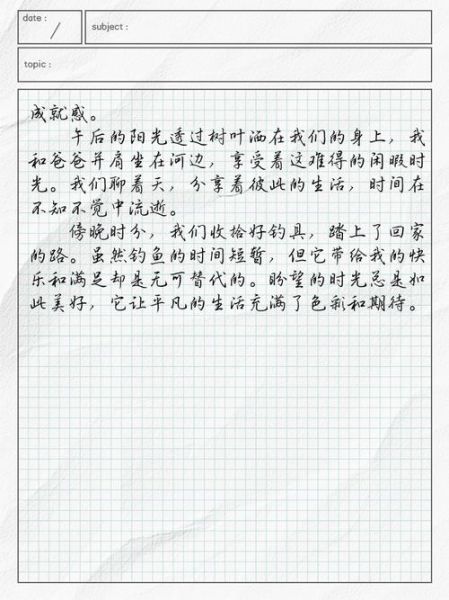 date :
/
subject :
topic :
成就感。
午后的阳光透过树叶洒在我们的身上，我
和爸爸并肩坐在河边，享受着这难得的闲暇时
光。我们聊着天，分享着彼此的生活，时间在
不知不觉中流逝。
傍晚时分，我们收拾好钓具，踏上了回家
的路。虽然钓鱼的时间短暂，但它带给我的快
乐和满足却是无可替代的。盼望的时光总是如
此美好，它让平凡的生活充满了色彩和期待。